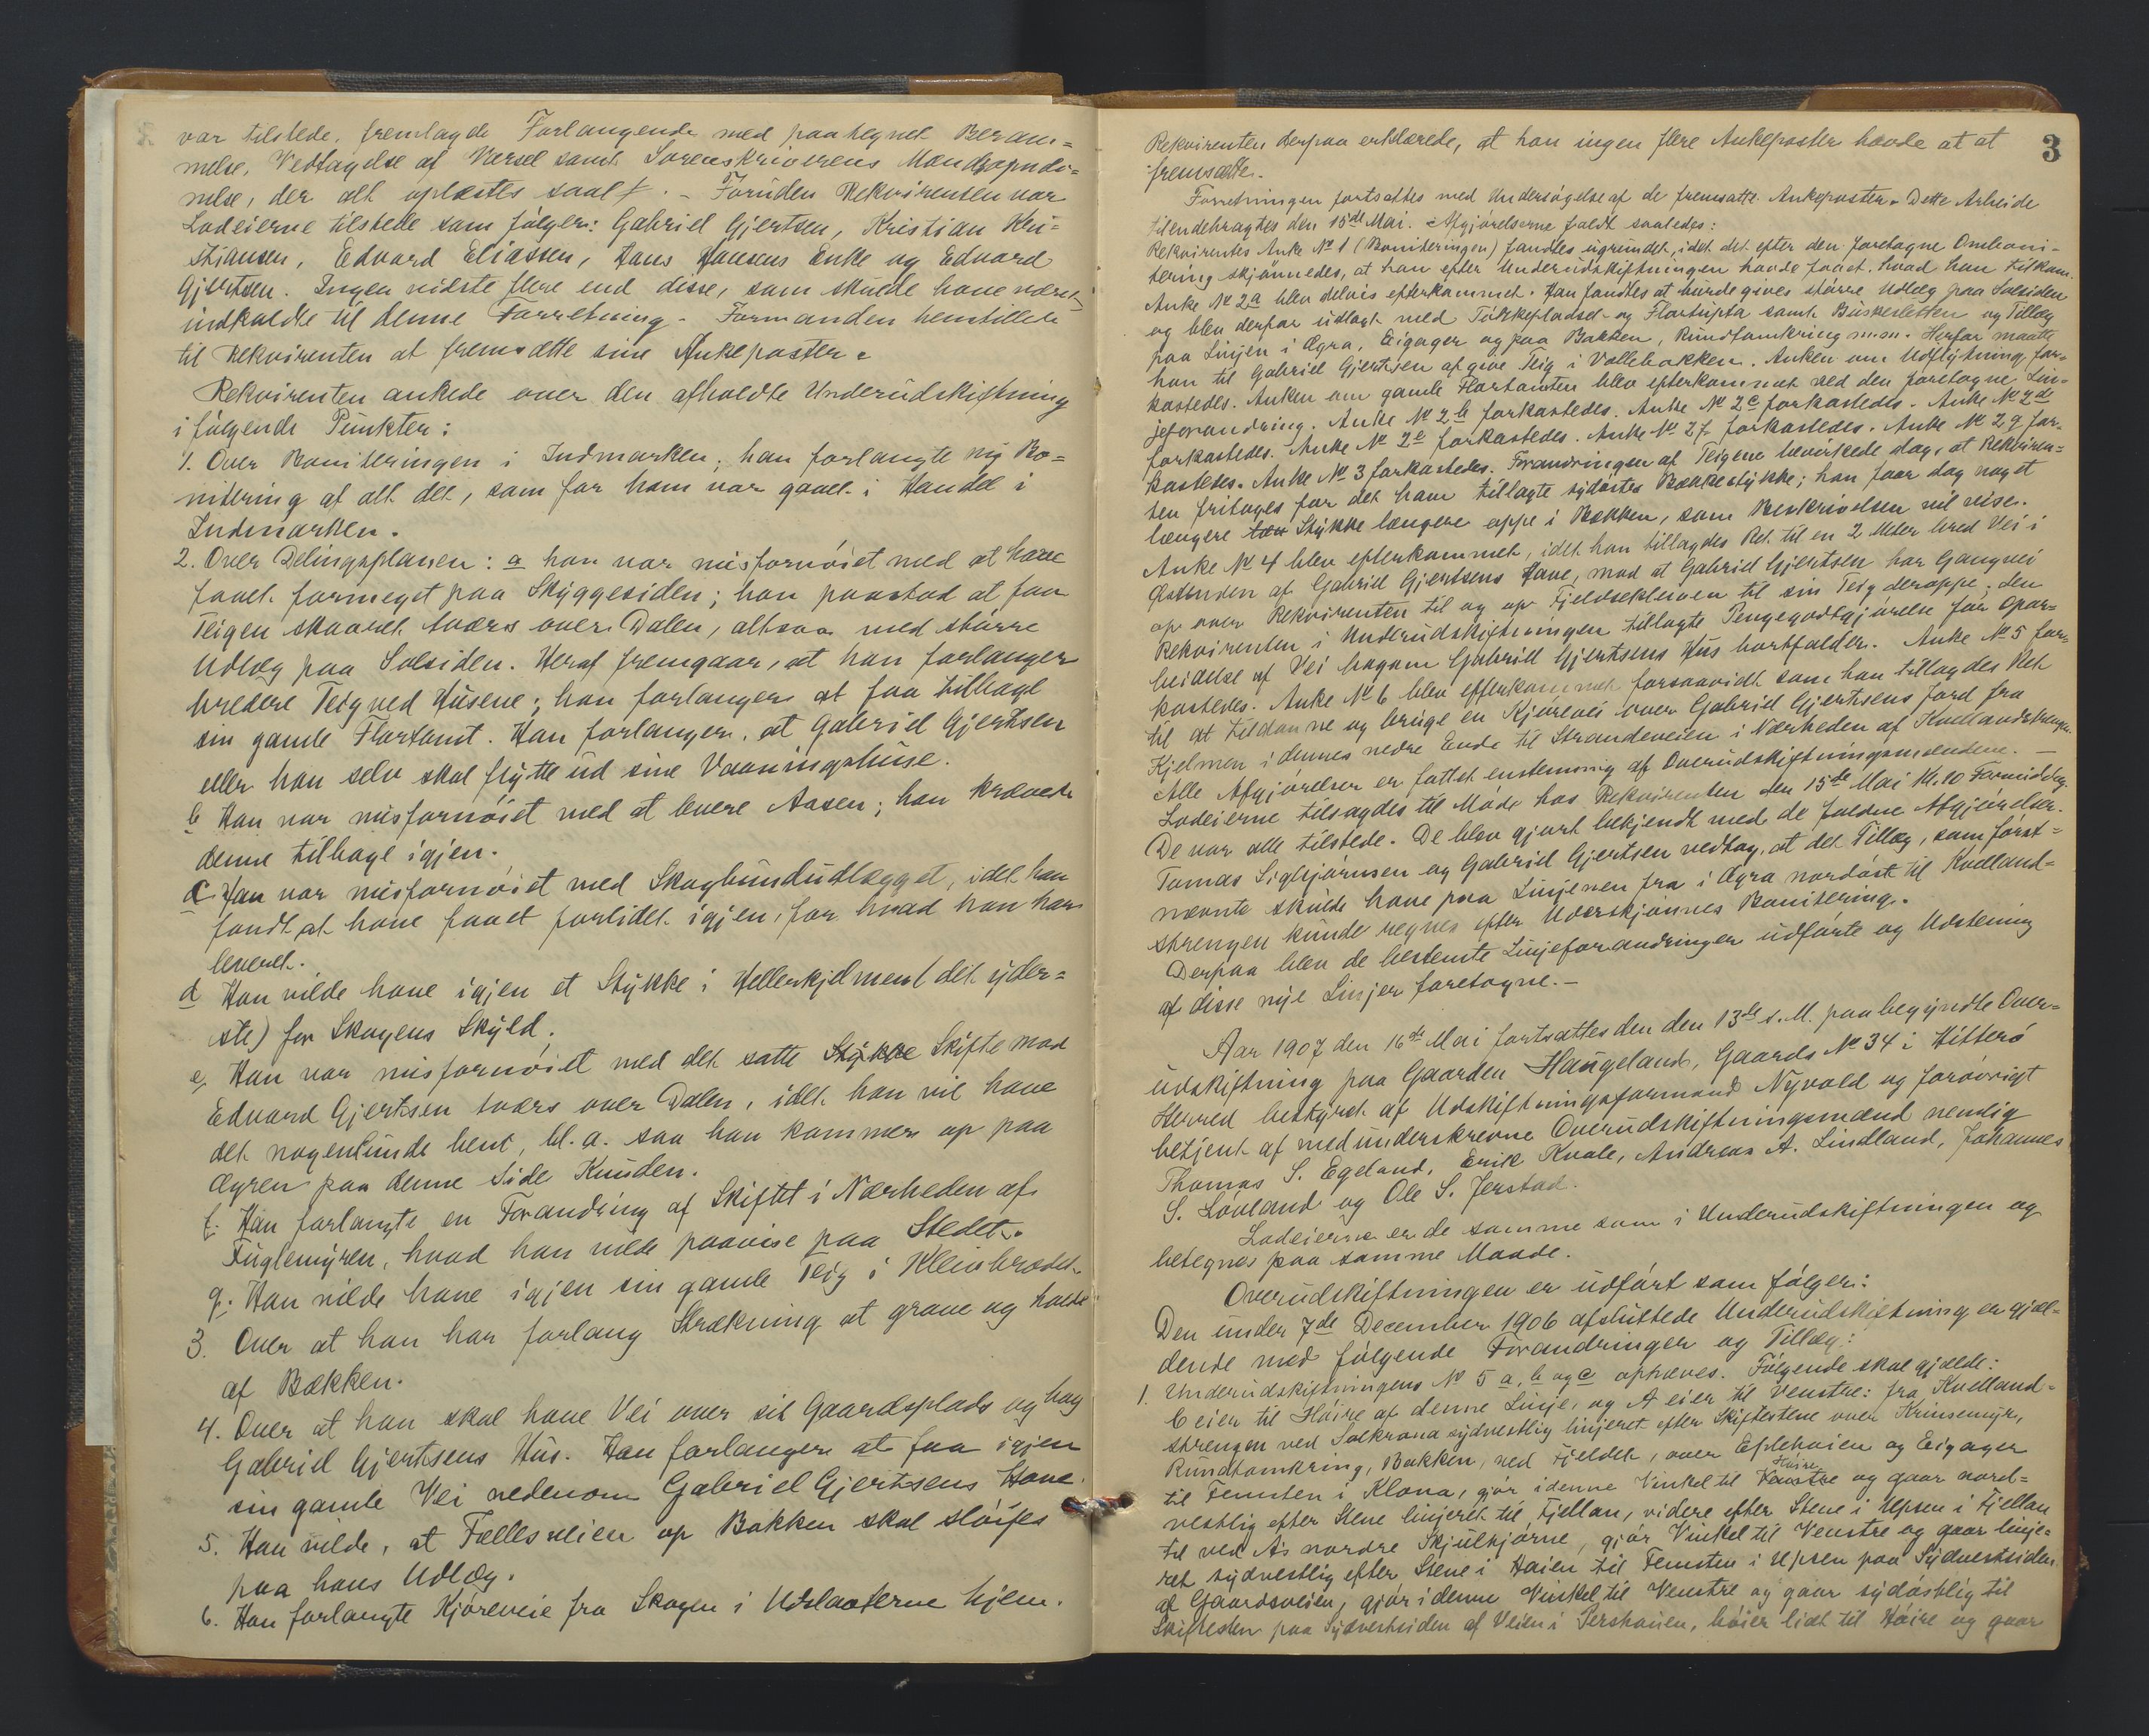 var tilstede, fremlagde Forlangende med paategnet Beram=
melse, Vedtagelse af Varsel samt Sorenskriverens Mandsopnæv=
nelse, der alt oplæstes saal. – Foruden Rekvirenten var
Lodeierne tilstede som følger: Gabriel Gjertsen, Kristian Kri=
stiansen, Edvard Eliassen, Hans Hansens Enke og Edvard
Gjertsen. Ingen vidste flere end disse, som skulde have været
indkaldte til denne Forretning. – Formanden henstillede
til Rekvirenten at fremsætte sine Ankeposter.
Rekvirenten ankede over den afholdte Underudskiftning
i følgende Punkter:
1. Over Boniteringen i Indmarken; han forlangte ny Bo=
nitering af alt det, som for ham var gaaet i Handel i
Indmarken.
2. Over Delingsplanen: a han var misfornøiet med at have
faaet formeget paa Skyggesiden; han paastod at faa
Teigen skaaret tværs over Dalen, altsaa med større
Udlæg paa Solsiden. Heraf fremgaar, at han forlanger
bredere Teig ved Husene; han forlanger at faa tilbage
sin gamle Flortomt. Han forlanger, at Gabriel Gjertsen
eller han selv skal flytte ud sine Vaaningshuse.
b Han var misfornøiet med at levere Aasen; han krævede
denne tilbage igjen.
c Han var misfornøiet med Skogbundudlægget, idet han
fandt at have faaet forlidet igjen, for hvad han har
leveret.
d Han vilde have igjen et Stykke i Hellerkjelment det yder=
ste) for Skogens Skyld.
e, Han var misfornøiet med det satte Stykke Skifte mod
Edvard Gjertsen tværs over Dalen, idet han vil have
det nogenlunde bent, bl. a. saa han kommer op paa
Ögren paa denne Side Knuden.
f. Han forlangte en Forandring af Skiftet i Nærheden af
Fuglemyren, hvad han vilde paavise paa Stedet.
g. Han vilde have igjen sin gamle Teig i Kleivbrodet.
3. Over at han har forlang Strækning at grave og holde
af Bækken.
4. Over at han skal have Vei over sit Gaardsplads og bag
Gabriel Gjertsens Hus. Han forlanger at faa igjen
sin gamle Vei nedenom Gabriel Gjertsens Have.
5. Han vilde, at Fællesveien op Bakken skal sløifes
paa hans Udlæg.
6. Han forlangte Kjøreveie fra Skogen i Udslaatterne hjem.
3
Rekvirenten derpaa erklærede, at han ingen flere Ankeposter havde at at
fremsætte.
Forretningen fortsattes med Undersøgelse af de fremsatte Ankeposter. Dette Arbeide
tilendebragtes den 15de Mai. Afgjørelserne faldt saaledes:
Rekvirentes Anke No 1 (Boniteringen) fandtes ugrundet, idet det efter den foretagne Omboni=
tering skjønnedes, at han efter Underudskiftningen havde faaet, hvad han tilkom.
Anke No 2a blev delvis efterkommet. Han fandtes at burde gives større Udlæg paa Solsiden
og blev derfor udlagt med Tørkepladsel og Flortufta samt Buskesletten og Tillæg
paa Linjen i Ögra, Eigager og paa Bakken, Rundtomkring m.m. Herfor maatte
han til Gabriel Gjertsen afgive Teig i Vollebakken. Anken om Udflytning for=
kastedes. Anken om gamle Flortomten blev efterkommet ved den foretagne Lin=
jeforandring. Anke No 2b forkastedes. Anke No 2c forkastedes. Anke No 2d
forkastedes. Anke No 2e forkastedes. Anke No 2f forkastedes. Anke No 2g for=
kastedes. Anke No 3 forkastedes. Forandringen af Teigene bevirkede dog, at Rekviren=
ten fritages for det ham tillagte sydøstre Bækkestykke; han faar dog noget
længere Stykke længere oppe i Bækken, som Beskrivelsen vil vise.
Anke No 4 blev efterkommet, idet han tillagdes Ret til en 2 Meter bred Vei i
Østenden af Gabriel Gjertsens Have, mod at Gabriel Gjertsen har Gangvei
op over Rekvirenten til og op Fjeldsekleiven til sin Teig deroppe. Den
Rekvirenten i Underudskiftningen tillagte Pengegodtgjørelse for Opar=
beidelse af Vei bagom Gabriel Gjertsens Hus bortfalder. Anke No 5 for=
kastedes. Anke No 6 blev efterkommet forsaavidt som han tillagdes Ret
til at tildanne og bruge en Kjørevei over Gabriel Gjertsens Jord fra
Kjelmen i dennes nedre Ende til Strandeveien i Nærheden af Kvellandstrengen.
Alle Afgjørelser er fattet enstemmig af Overudskiftningsmændene. –
Lodeierne tilsagdes til Møde hos Rekvirenten den 15de Mai Kl. 10 Formiddag.
De var alle tilstede. De blev gjort bekjendt med de faldne Afgjørelser.
Tomas Sigbjørnsen og Gabriel Gjertsen vedtog, at det Tillæg, som først=
nævnte skulde have paa Linjenen fra i Ögra nordøst til Kvelland=
strengen kunde regnes efter Underskjønnes Bonitering.
Derpaa blev de bestemte Linjeforandringer udførte og Udstening
af disse nye Linjer foretagne. –
Aar 1907 den 16de Mai fortsattes den den 13de s.M. paabegyndte Over=
udskiftning paa Gaarden Haugeland, Gaards No 34 i Hitterø
Herred bestyret af Udskiftningsformand Nyvold og forøvrigt
betjent af medunderskrevne Overudskiftningsmænd nemlig
Thomas S. Egeland, Erik Kvale, Andreas A. Lindland, Johannes
S. Løvland og Ole S. Jerstad.
Lodeierne er de samme som i Underudskiftningen og
betegnes paa samme Maade.
Overudskiftningen er udført som følger:
Den under 7de December 1906 afsluttede Underudskiftning er gjæl=
dende med følgende Forandringer og Tillæg:
1. Underudskiftningens No 5 a, b og c ophæves. Følgende skal gjælde:
C eier til Høire af denne Linje, og A eier til Venstre: fra Kvelland=
strengen ved Solkrona sydvestlig linjeret efter Skiftestene over Krinsemyr,
Rundtomkring, Bakken, ned Fjeldet, over Eplehaien og Eigager
til Femsten i Klona, gjør i denne Vinkel til Venstre Høire og gaar nord=
vestlig efter Stene linjeret til Fjellan, videre efter Stene i Upsen i Fjellan
til ved A's nordre Skjulhjørne, gjør Vinkel til Venstre og gaar linje=
ret sydvestlig efter Stene i Haien til Femsten i Upsen paa Sydvestsiden
af Gaardsveien, gjør i denne Vinkel til Venstre og gaar sydøstlig til
Skiftesten paa Sydvestsiden af Veien i Pershaien, bøier lidt til Høire og gaar